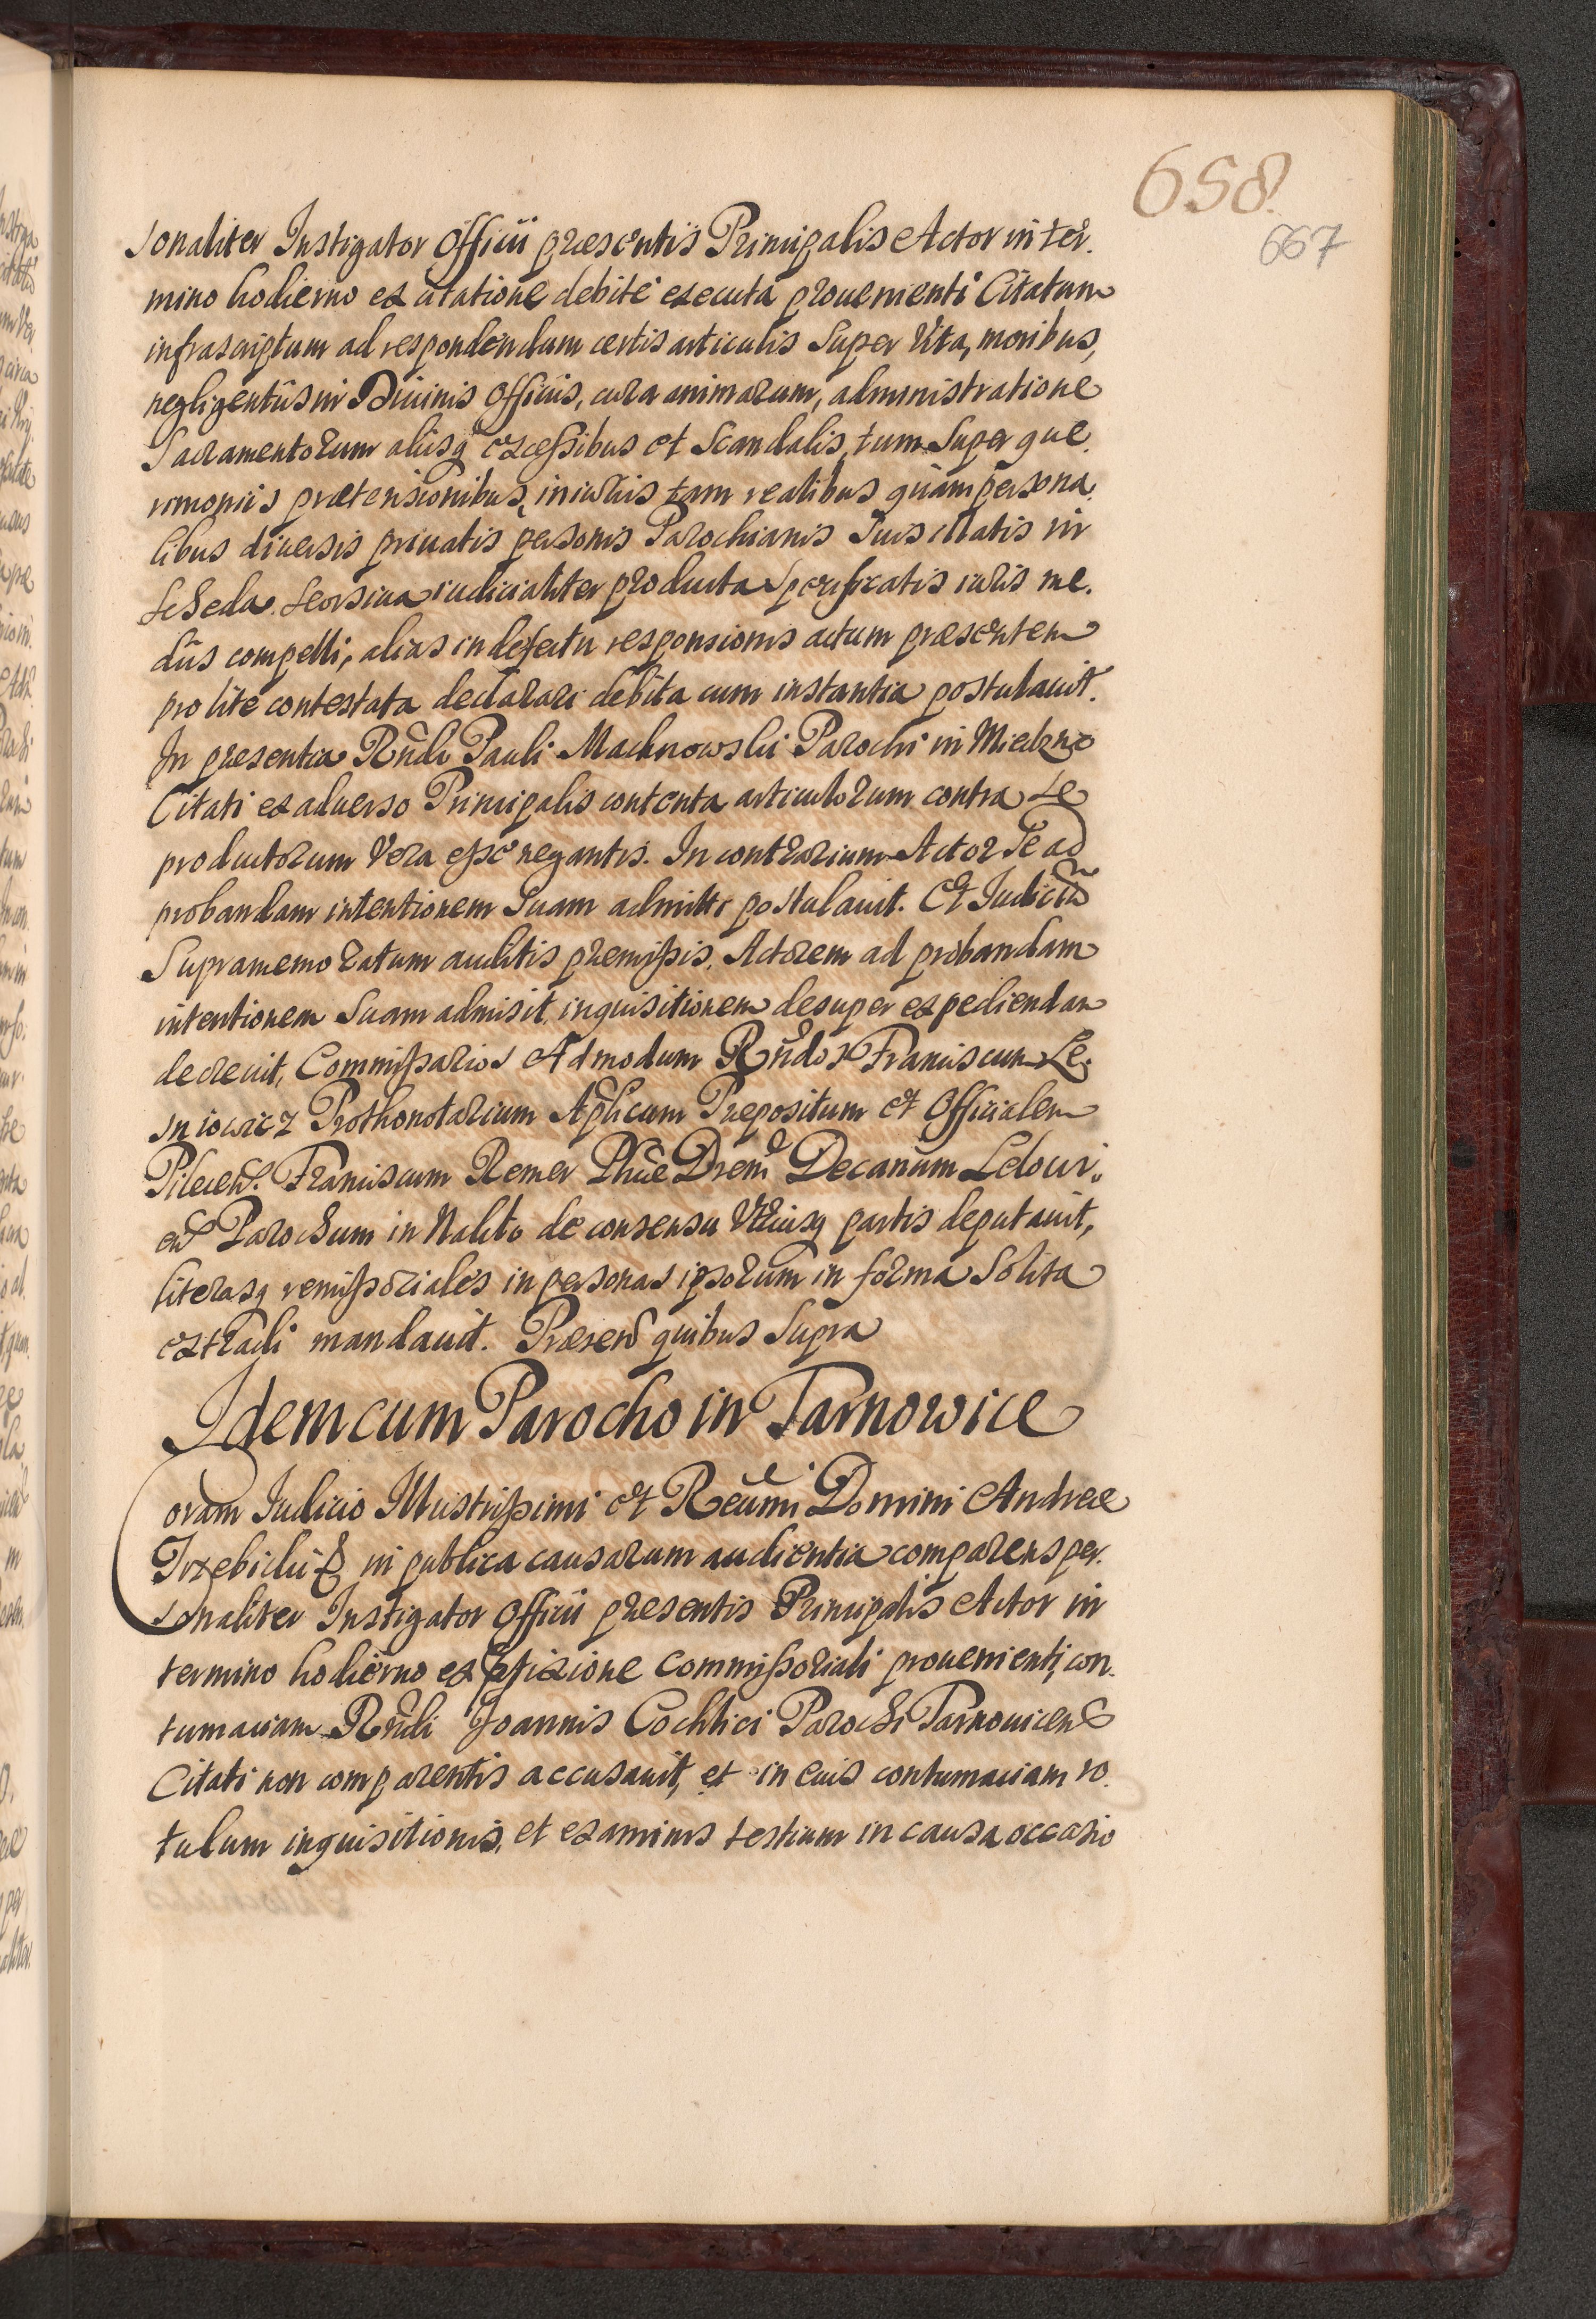 658.
667
sonaliter Instigator Officii præsentis Principalis Actor in ter.
mino hodierno ex citatione debite executa proueniente Citatum
infrascriptum ad respondendum certis articulis super Vita, moribus,
negligentiis in Diuinis Officiis, cura animarum, administratione
Sacramentorum aliisq excessibus et Scandalis, tum super que.
rimoniis prætensionibus, iniuriis tam realibus quàm persona.
libus diuersis priuatis personis Parochianis suis illatis in
scheda seorsiua iudicialiter producta specificatis iuris me.
diis compelli, alias in defectu responsionis actum præsentem
pro lite contestata declarari debita cum instantia postulauit.
In præsentia Rndi Pauli Machnowski Parochi in Miedzno
Citati ex aduerso Principalis contenta articulorum contra se
productorum Vera esse negantis. In contrarium Actor se ad
probandam intentionem suam admitti postulauit. Et Iudiciũ
Supramemoratum auditis præmissis, Actorem ad probandam
intentionem suam admisit, inquisitionem desuper expediendam
decreuit, Commissarios Admodum Rndos Franciscum Le.
sniowicz Prothonotarium Aplicum Præpositum et Officialem
Pilecen. Franciscum Remer Phiæ Drem Decanum Lelouí.
en Parochum in Nakło de consensu Vtriusq partis deputauit,
literasq remissoriales in personas ipsorum in forma solita
extradi mandauit. Præsen quibus supra
Idem cum Parocho in Tarnowice
Coram Iudicio Illustrissimi et Reũmi Domini Andreæ
Trzebicki &c in publica causarum audientia comparens per.
sonaliter Instigator Officii præsentis Principalis Actor in
termino hodierno ex commissoriali proueniente, con.
tumaciam Rndi Joannis Cochlici Parochi Tarnouicen
Citati non comparentis accusauit, et in eius contumaciam ro.
tulum inquisitionis, et examinis testium in causa occasio